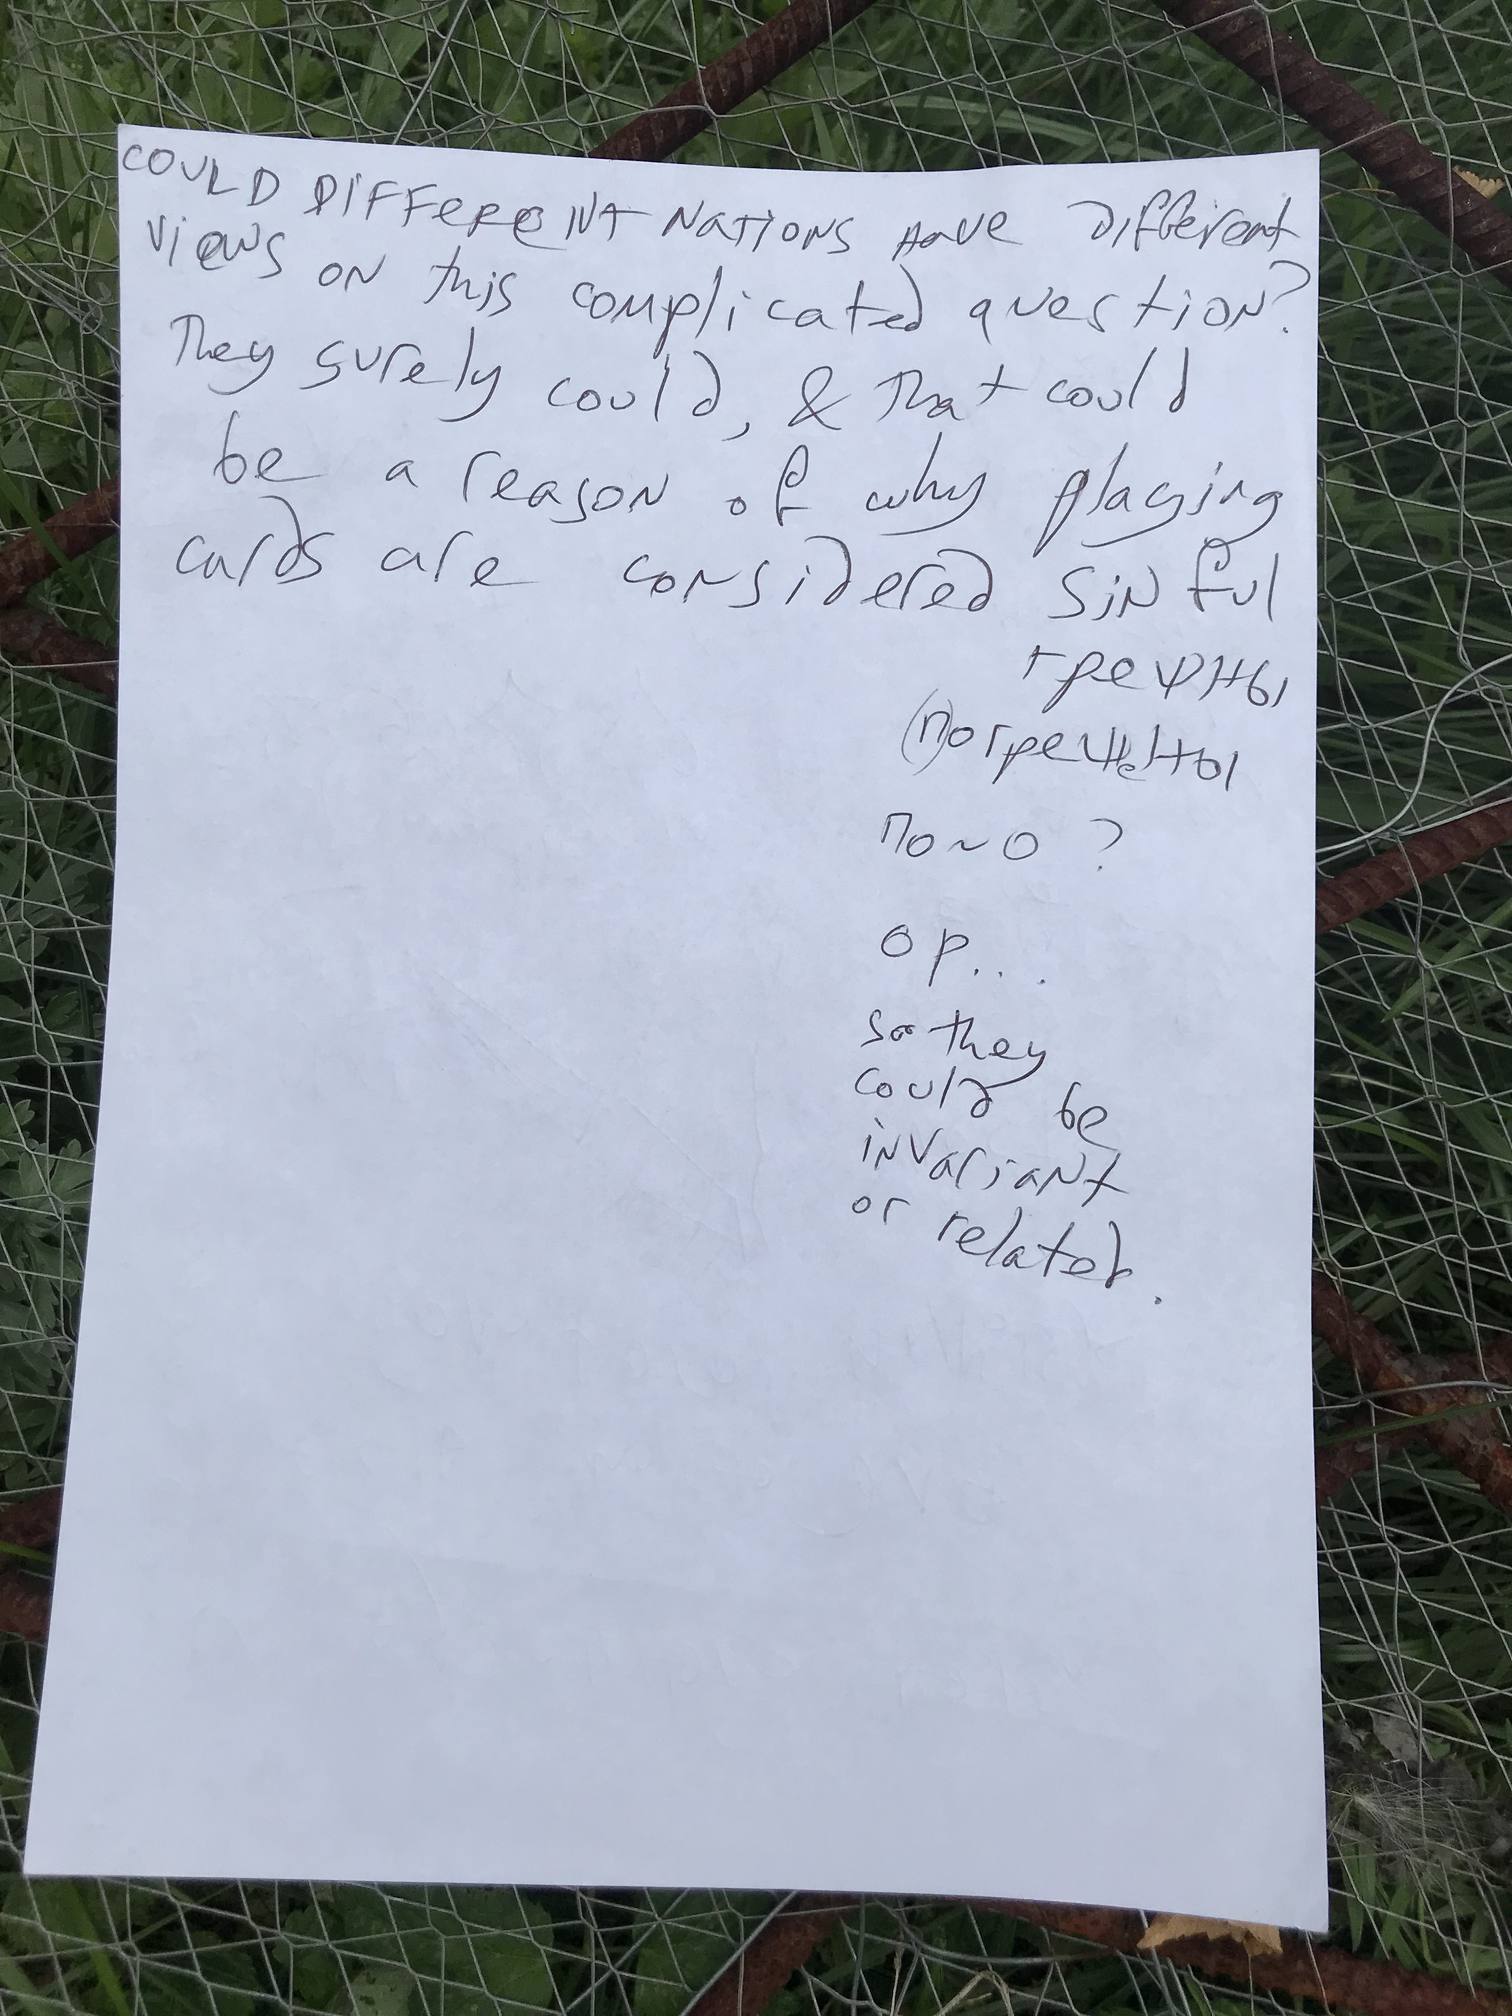 COULD DIFFERENT NATIONS HAVE Different
views on this complicated question?
They surely could, & That could
be a reason of why playing
cards are considered sinful
греψны
(п)огреψеНы
по~о ?
ор...
so they
could be
invariant
or related.